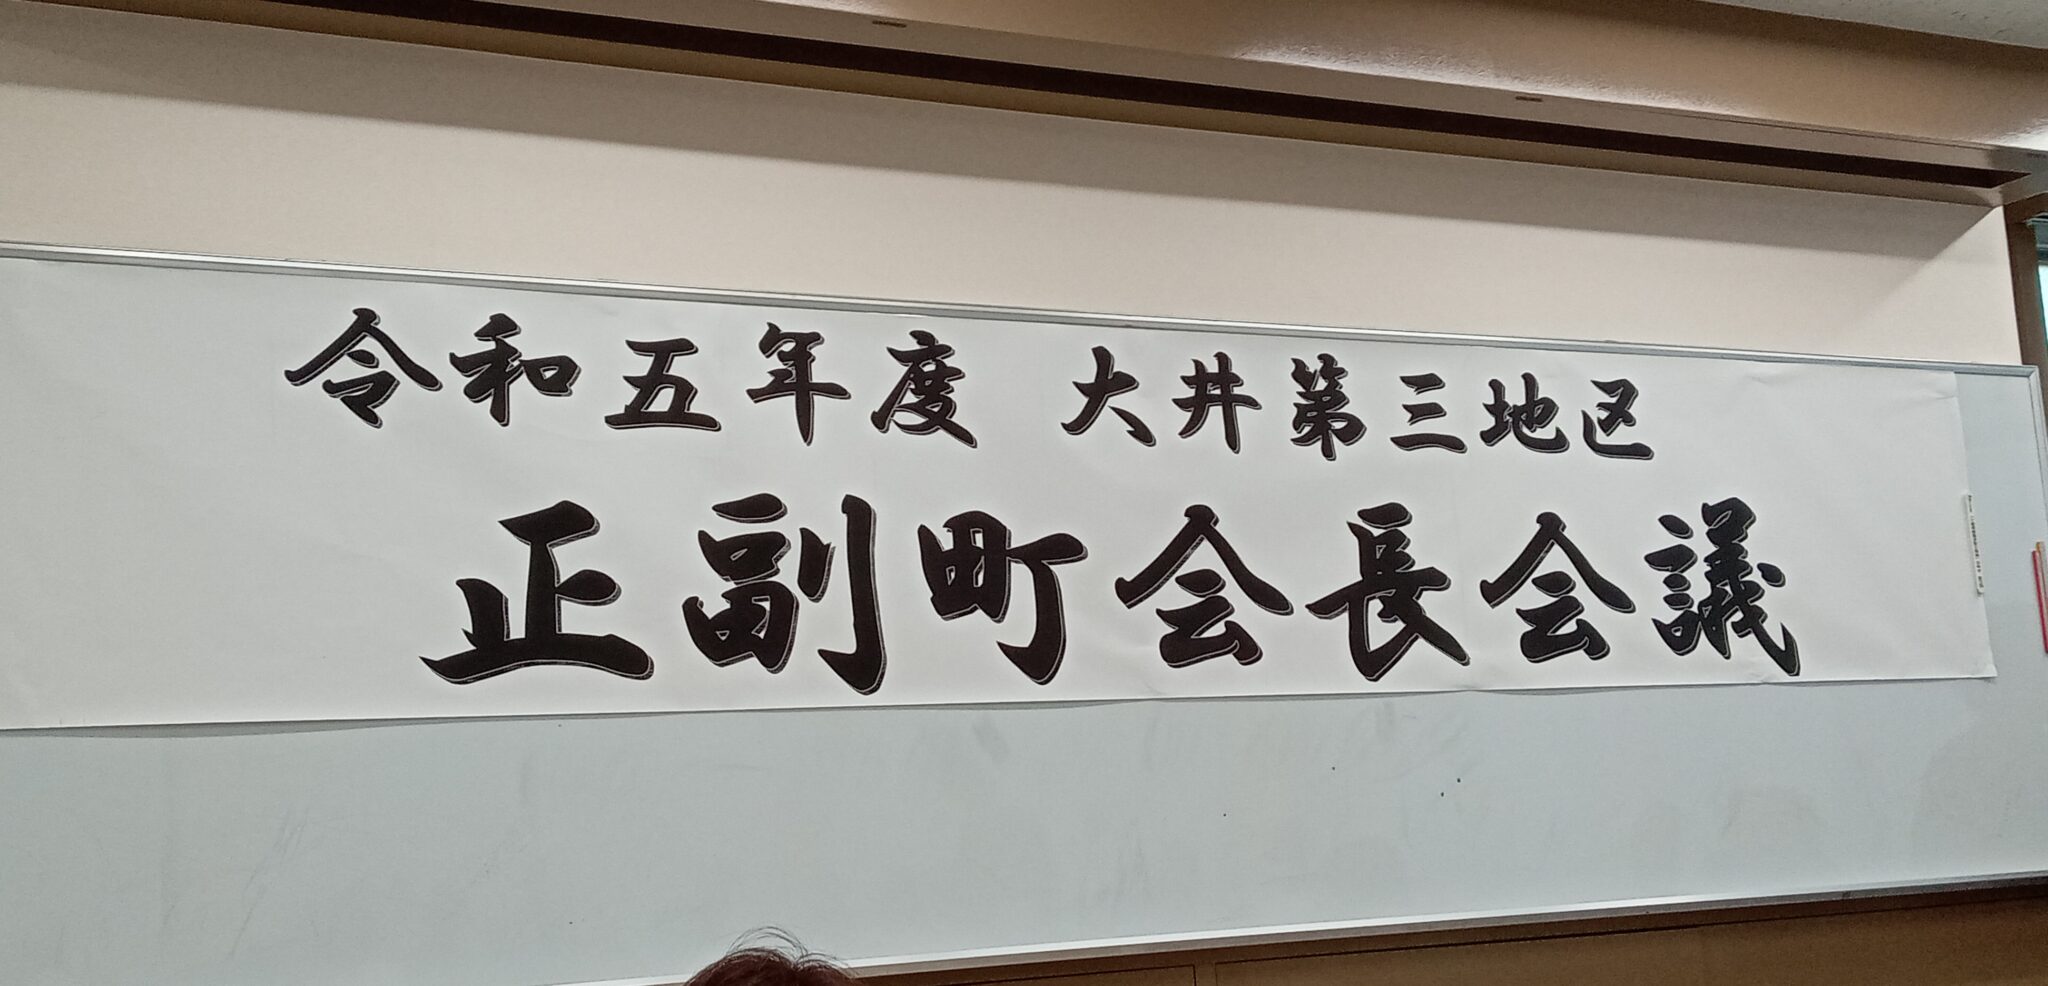 令和五年度　大井第三地区
正副町会長会議